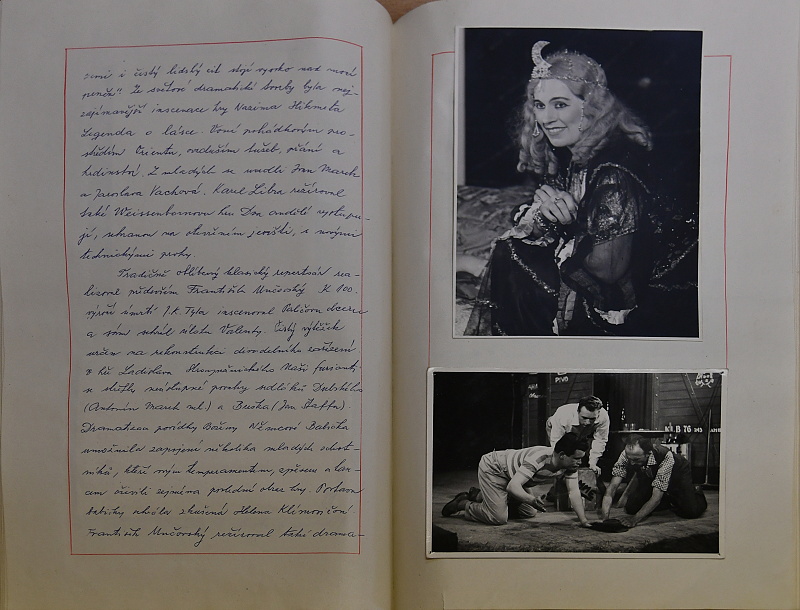 zemi i čistý lidský cit stojí vysoko nad mocí
peněz". Ze světové dramatické tvorby byla nej-
zajímavější inscenace hry Nazima Hikmeta
Legenda o lásce. Voní pohádkovým pro-
středím Orientu, ovzduším tužeb, přání a
hrdinství. Z mladých se uvedli Jan March
a Jaroslava Vachová. Karel Libra režíroval
také Weissenbornovu hru Dva andělé vystupu-
jí, sehranou na otevřeném jevišti, s novými
technickými prvky.
Tradičně oblíbený klasický repertoár rea-
lizoval především František Unčovský. K 100.
výročí úmrtí J. K. Tyla inscenoval Paličovu dceru
a sám sehrál úlohu Valenty. Čistý výtěžek
určen na rekonstrukci divadelního zařízení.
V hře Ladislava Stroupežnického Naši furianti
se střetly neústupné povahy sedláků Dubského
(Antonín March ml.) a Buška (Jan Štaffa).
Dramatizace povídky Boženy Němcové Babička
umožnila zapojení několika mladých ochot-
níků, kteří svým temperamentem, zpěvem a tan-
cem oživili zejména poslední obraz hry. Postavu
babičky sehrála zkušená Helena Klímovičová.
František Unčovský režíroval také drama-
K B 76